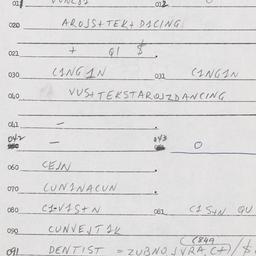 020 AROJSS+TEK+DICING
021 + 91 $
030 C1NG1N 031 C1NG1N
040 VUS+TEKSTAROJZDANCING
041 –
042 – 043 0
060 CEJN
070 CUN1NACUN
080 C1-V1S+N 081 C1S+N QU
090 CUNVEJT1K
091 DENTIST = ZUBNOJ